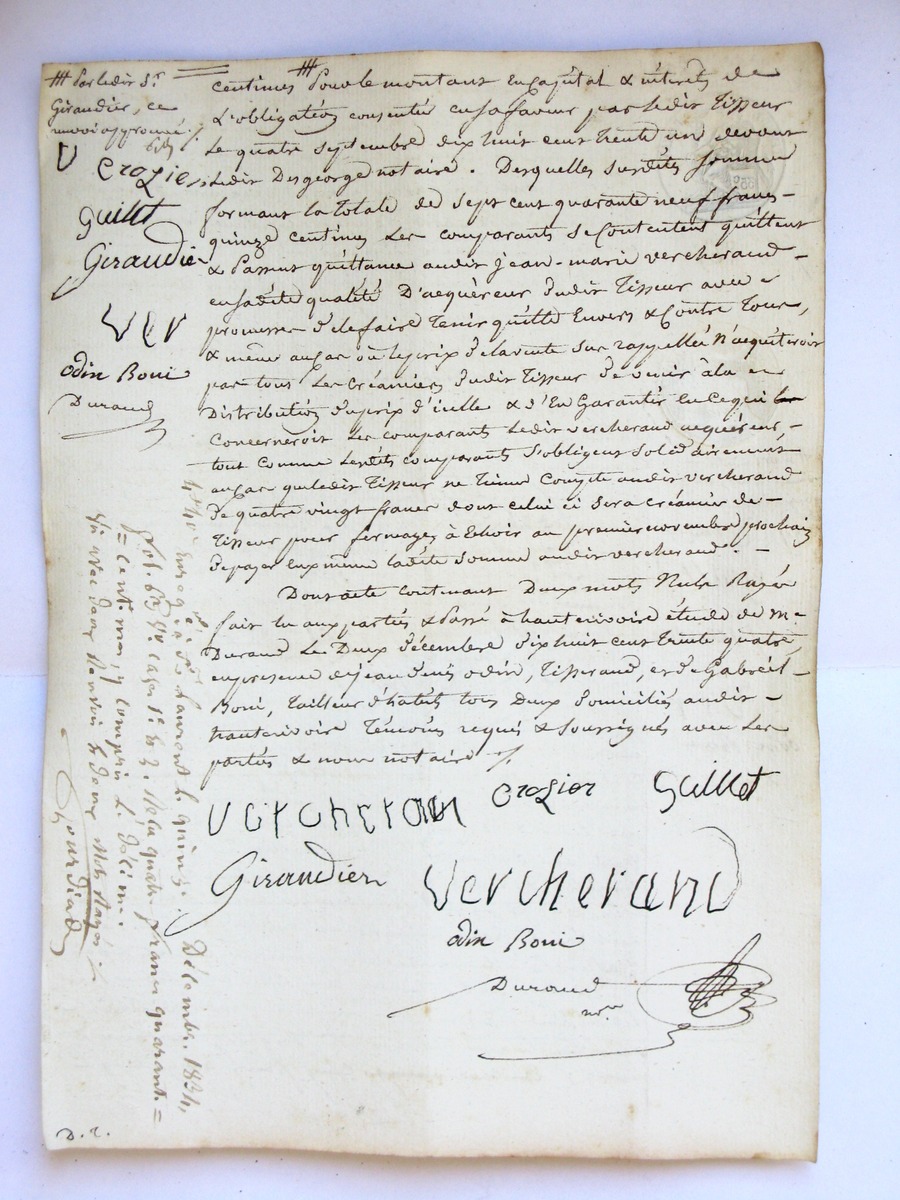 +++ Par ledit Sr
Giraudier, ce
renvoi approuvé
Crozier
Guillet
Giraudier
Ver
odin Boni
Durand
centimes +++ Pour le montant en capital & intérêts de
L'obligation consentie en sa faveur par ledit Tisseur
Le quatre septembre dix huit cent trente un devant
Ledit Desgeorge notaire. Desquelles susdites somme
formant la totale de sept cent quarante neuf francs -
quinze centimes Les comparants se Contentent quittent
& Passent quittance audit jean-marie vercherand -
en sadite qualité D'acquéreur dudit Tisseur avec
promesse de le faire Tenir quitte Envers & Contre Tous,
& même au cas où le prix de la vente sus rappellée N'acquitteroit
pas tous Les Créanciers dudit Tisseur De venir à la
Distribution du prix d'icelle & d'En Garantir En Ce qui Le
Concerneroit Les comparants Ledit vercherand acquéreur -
tout comme Lesdits comparants S'obligent Solidairement
au cas que ledit Tisseur ne Tienne Compte audit vercherand
De quatre vingt francs dont celui ci sera créancier de -
Tisseur pour fermages à Echoir au premier novembre prochain
De payer Eux même ladite Somme audit vercherand. -
Dont acte Contenant Deux mots Nuls Rayés
fait lu aux parties & Passé à hauterivoire étude de me
Durand Le Deux Décembre dix huit cent Trente quatre,
en presence de jean denis odin, Tisserand, et de Gabriel -
Boni, Tailleur d'habits tous Deux domiciliés audit -
hauterivoire Témoins requis & Soussignés avec Les
parties & nous notaire
Vercheran Crozier Guillet
Giraudier Vercherand
odin Boni
Durand
nre
Enregé à St Laurent le quinze Décembre 1834,
fol. 63 Vo Case 1re & 2. Reçu quatre francs quarante =
= Cent. mes y Compris le Décime.
Gourdiad
D. R.